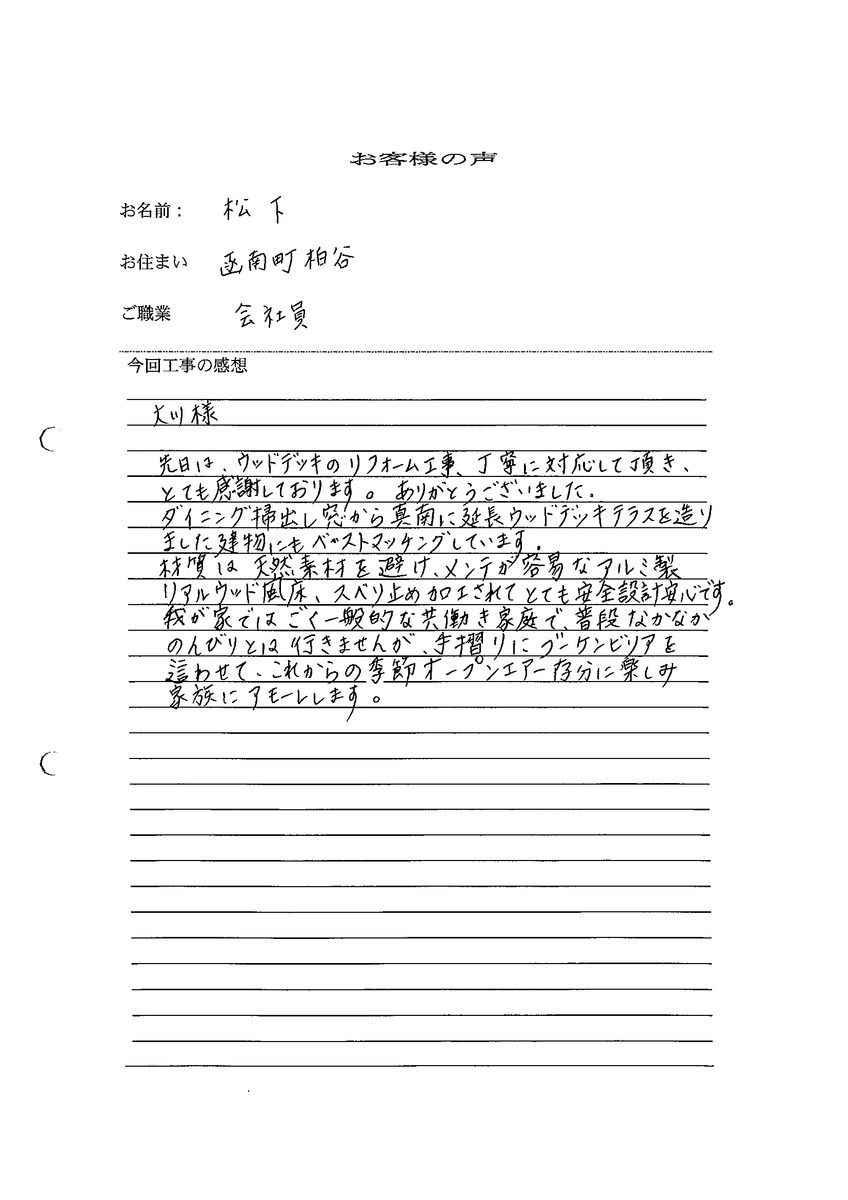 お客様の声
お名前： 松下
お住まい 函南町柏谷
ご職業 会社員
今回工事の感想
大川様
先日は、ウッドデッキのリフォーム工事、丁寧に対応して頂き、
とても感謝しております。ありがとうございました.
ダイニング掃出し窓から真南に延長ウッドデッキテラスを造り
ました建物にもベストマッチングしています.
材質は天然素材を避け、メンテが容易なアルミ製
リアルウッド風床、スベリ止め加工されてとても安全設計安心です。
我が家ではごく一般的な共働き家庭で、普段なかなか
のんびりとは行きませんが、手摺りにブーゲンビリアを
這わせて、これからの季節オープンエアー存分に楽しみ
家族にアモーレします。